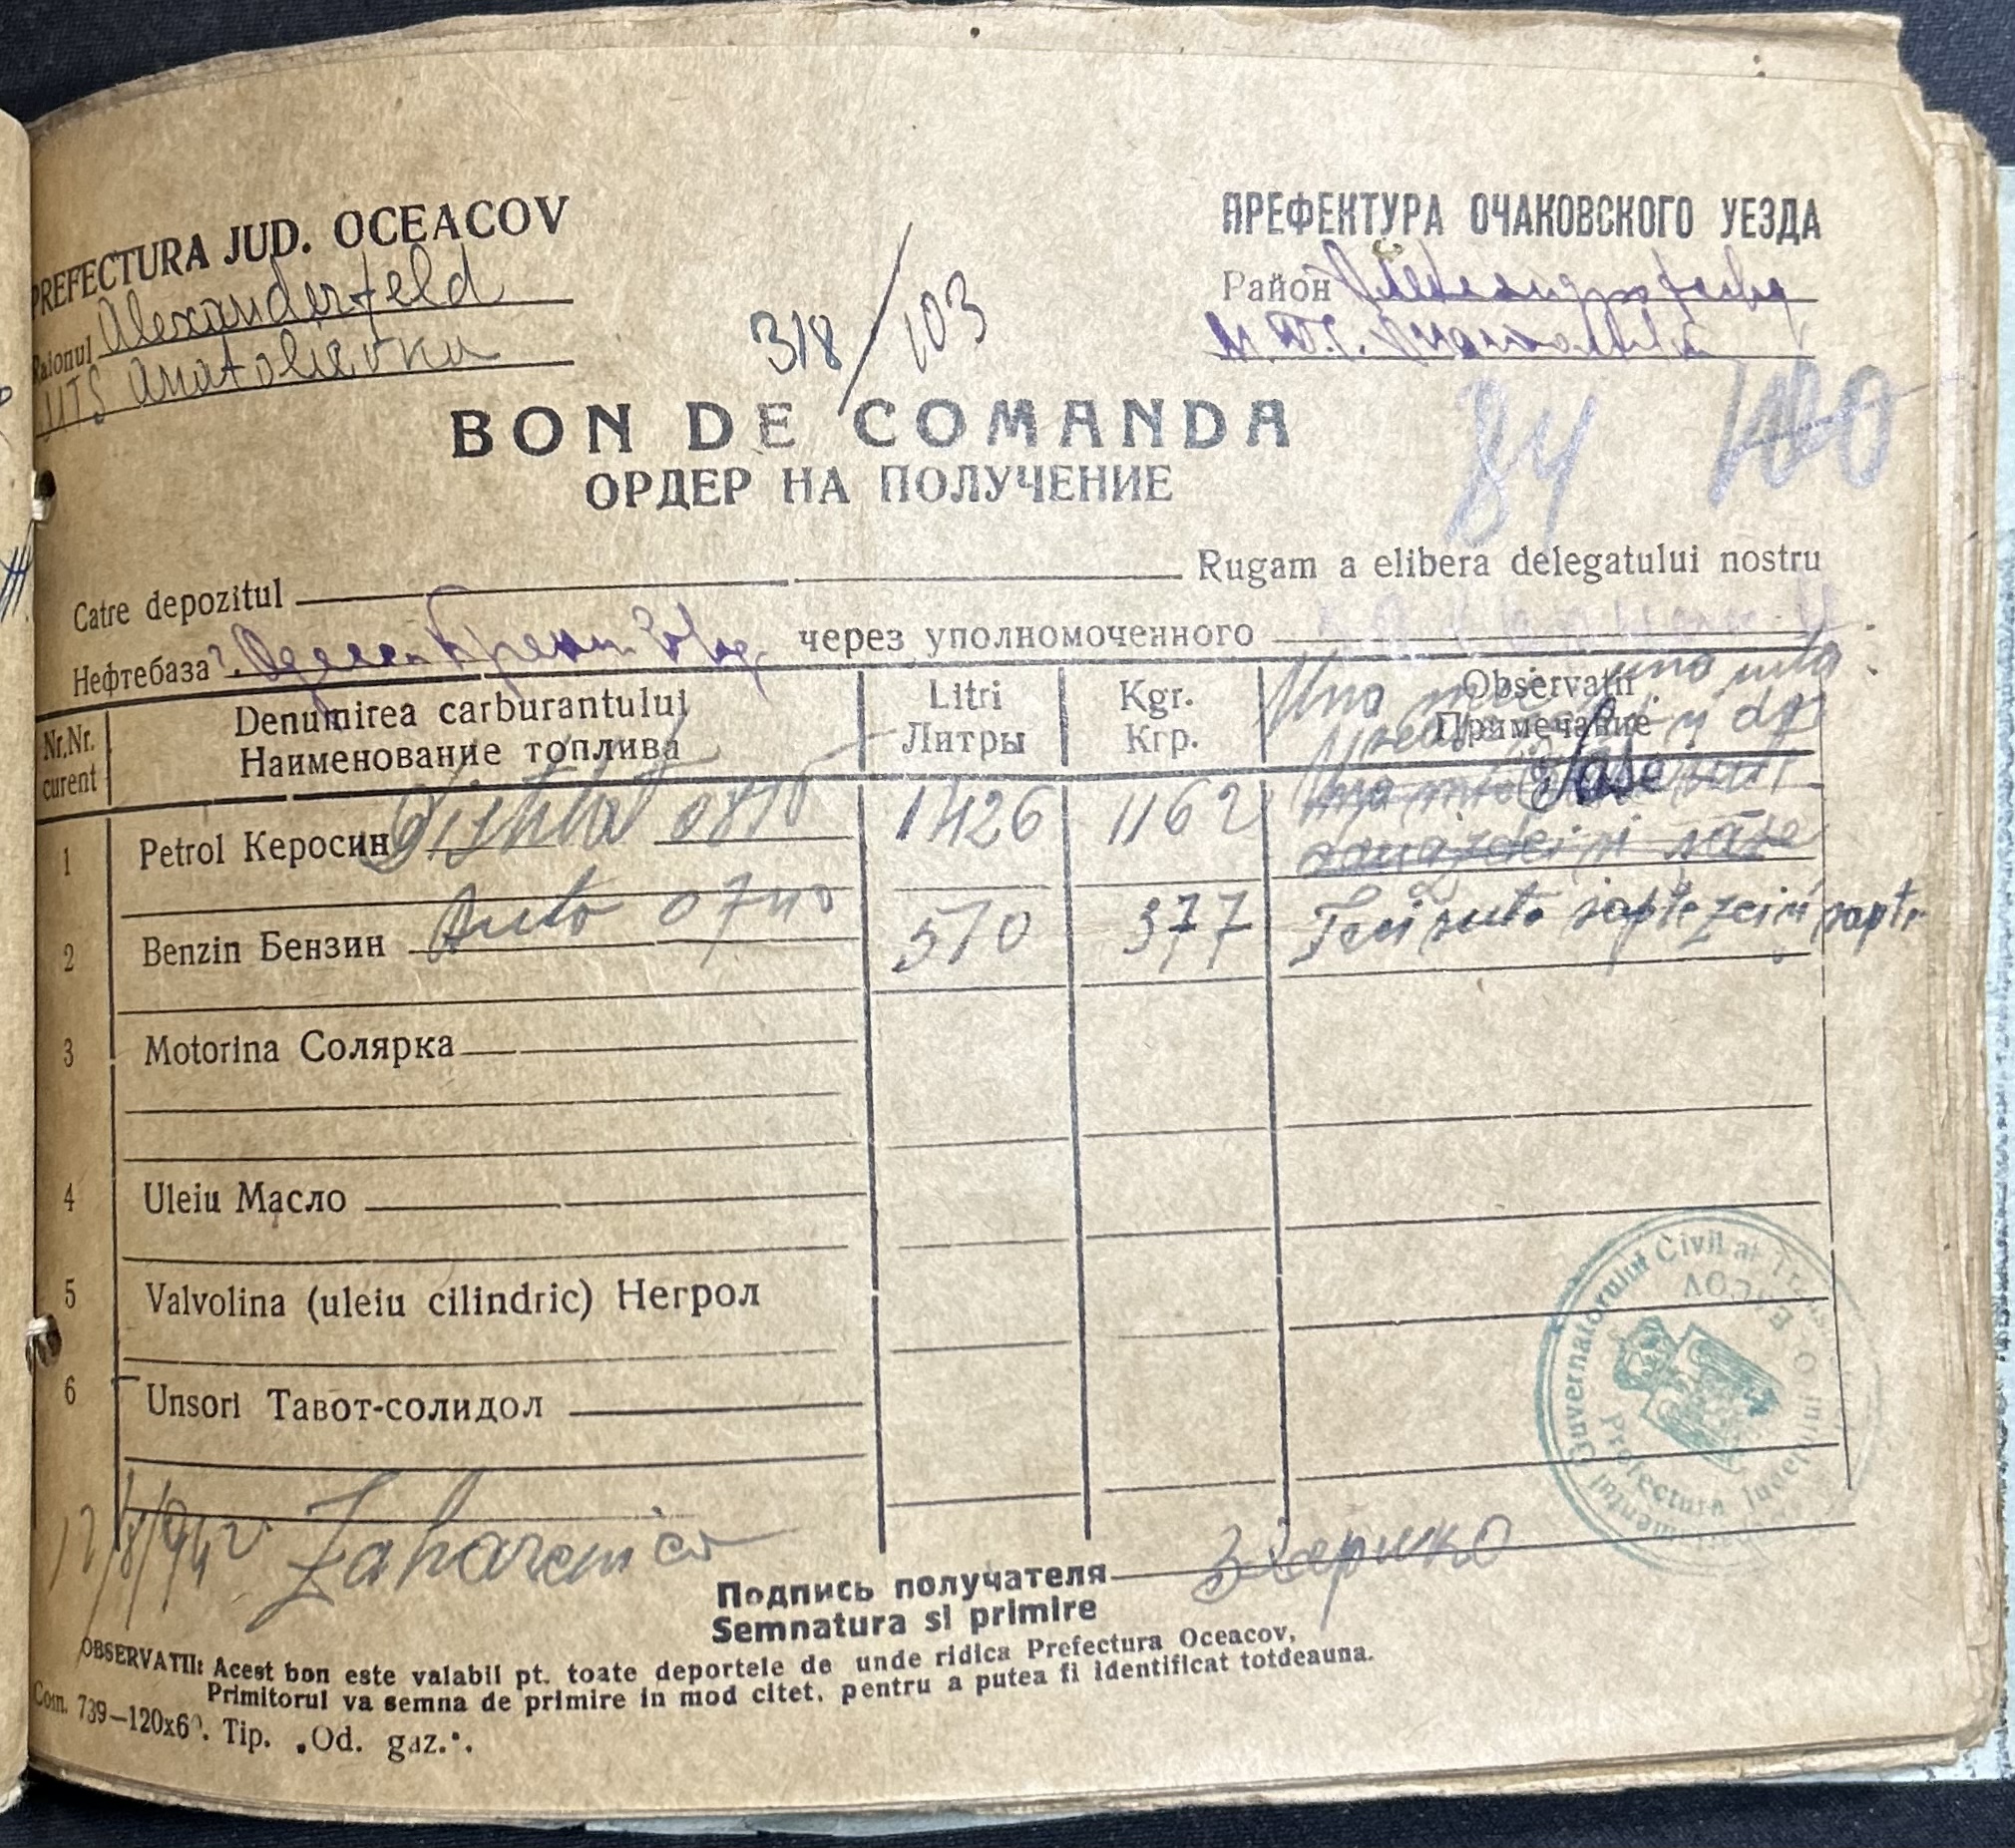 PREFECTURA JUD. OCEACOV
Raionul Alexanderfeld
MTS Anatolievka
318/103
ПРЕФЕКТУРА ОЧАКОВСКОГО УЕЗДА
Район
М.Т.С.
BON DE COMANDA
ОРДЕР НА ПОЛУЧЕНИЕ
84 100
Catre depozitul Rugam a elibera delegatului nostru
Нефтебаза г. Одесса через уполномоченного
Nr.Nr. curent
Denumirea carburantului
Наименование топлива
Litri
Литры
Kgr.
Кгр.
Observatii
Примечание
Una mie una suta
sase
1 Petrol Керосин 1426 1162
2 Benzin Бензин Auto 0740 510 377 Trei sute saptezeci si sapte
3 Motorina Солярка
4 Uleiu Масло
5 Valvolina (uleiu cilindric) Негрол
6 Unsori Тавот-солидол
Guvernatorului Civil al
Prefectura Judeţului O EACOV
Подпись получателя
Semnatura si primire
OBSERVATII: Acest bon este valabil pt. toate deportele de unde ridica Prefectura Oceacov,
Primitorul va semna de primire in mod citet, pentru a putea fi identificat totdeauna.
Com. 739—120x60. Tip. „Od. gaz.".